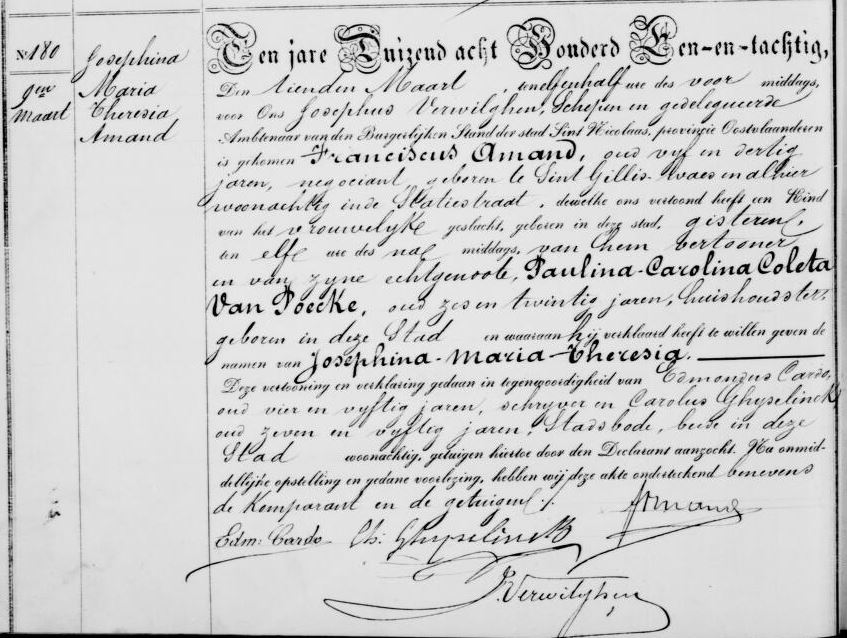 No 180
9en
Maart
Josephina
Maria
Theresia
Amand
Ten jare Duizend acht Honderd Een-en-tachtig,
Den tienden Maart, ten elfenhalf ure des voor middags,
voor Ons Josephus Verwilghen, Schepen en gedelegueerde
Ambtenaar van den Burgerlijken Stand der stad Sint Nicolaas, provincie Oostvlaanderen
is gekomen Franciscus Amand, oud vyf en dertig
jaren, negociant, geboren te Sint Gillis-Waes en alhier
woonachtig in de Statiestraat, dewelke ons vertoond heeft een Kind
van het vrouwelyke geslacht, geboren in deze stad, gisteren,
ten elf ure des na middags, van hem vertooner
en van zyne echtgenoote, Paulina-Carolina Coleta
Van Poecke, oud zes en twintig jaren, huishoudster,
geboren in deze Stad en waaraan hij verklaard heeft te willen geven de
namen van Josephina-Maria-Theresia.
Deze vertooning en verklaring gedaan in tegenwoordigheid van Edmondus Cardo,
oud vier en vyftig jaren, schryver en Carolus Ghyselinck
oud zeven en vyftig jaren, Stadsbode, beide in deze
Stad woonachtig, getuigen hiertoe door den Declarant aanzocht. Na onmid-
dellijke opstelling en gedane voorlezing, hebben wij deze akte onderteekend benevens
de Komparant en de getuigen ./.
FAmand
Edm: Cardo Ch: Ghyselinck
J. Verwilghen